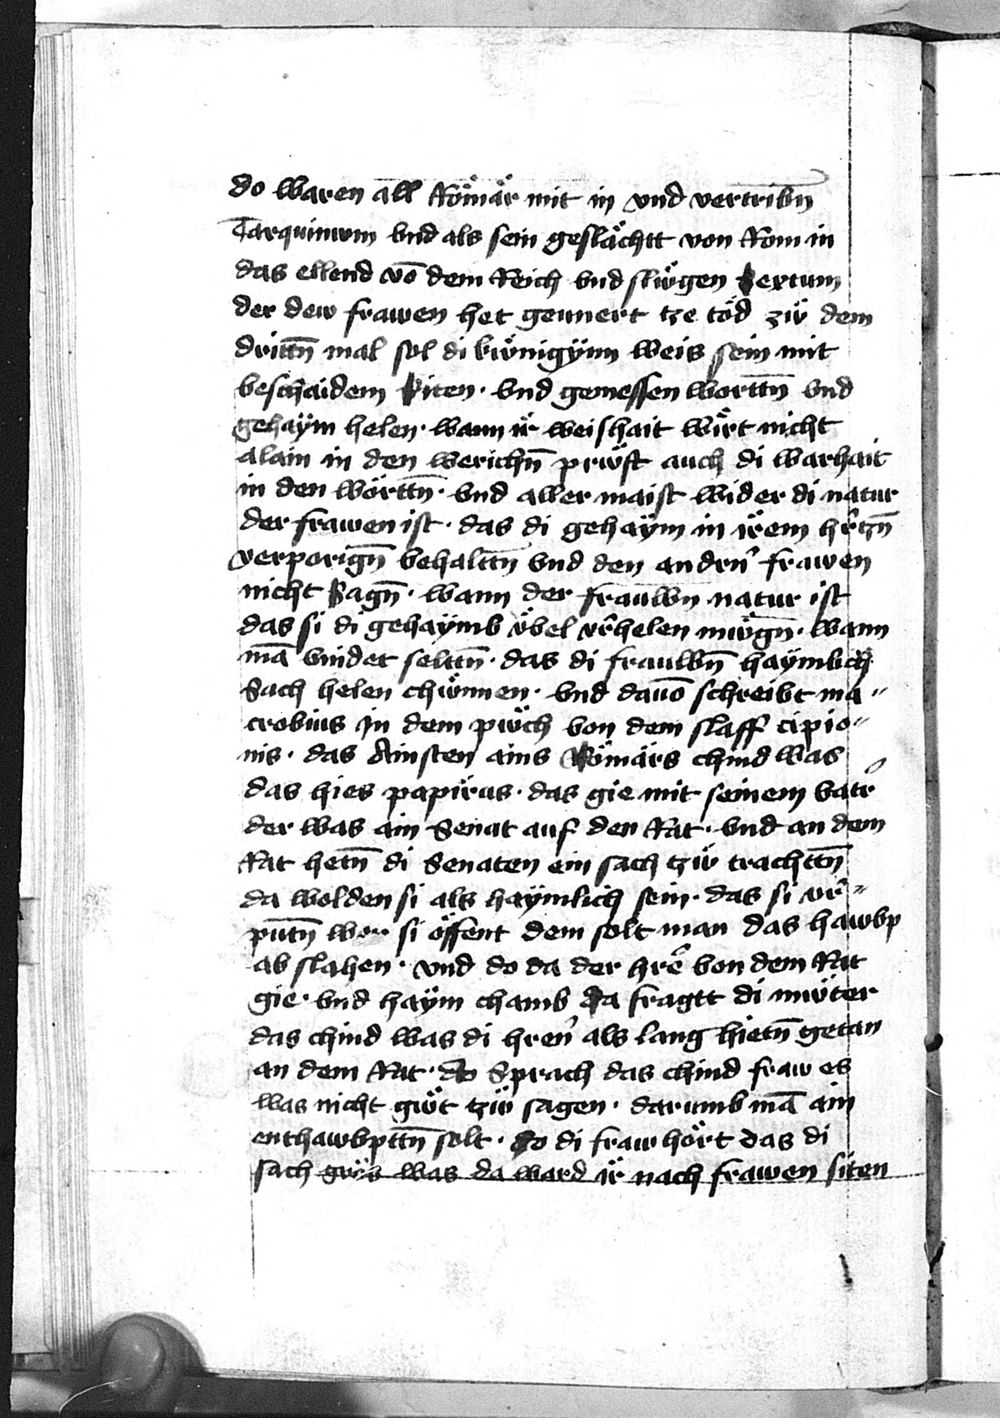 do waren all Römär mit in vnd vertribn̄
Tarquinium vnd als sein geslächtt von Rom in
das ellend vō dem Reich vnd slügen Sextum
der dew frawen het geunert tze töd zü dem
drittn̄ mal sol di künigÿnn weis sein mit
beschaidem siten · vnd gemessen worttn̄ vnd
gehaÿm helen · wann ir weishait wirt nicht
alain in den werichn̄ prüft auch di warhait
in den wörttn̄ · vnd aller maist wider di natur
der frawen ist · das di gehaÿm in irem hr̄tzn̄
verporign̄ behalttn̄ vnd den andrn̄ frawen
nicht sagn̄ · wann der frauwn natur ist
das si di gehaÿmb übel vr̄helen mügn̄ · wann
mā vindet selttn̄ · das di frauwn̄ haÿmlich
sach helen chünnen · vnd dauō schreibt ma〃
crobius in dem püch von dem slaff cipio〃
nis · das Ainsten ains Römärs chind was
das hies papirus · das gie mit seinem vatr̄
der was ain Senat auf den Rat · vnd an dem
Rat hetn̄ di Senaten ein sach tzü trachttn̄
da wolden si als haÿmlich sein · das si vr̄〃
putn̄ wer si öffent dem solt man das hawbp
ab slahen · vnd do da der hrē von dem Rat
gie · vnd haÿm chamb da fragtt di müter
das chind was di hren̄ als lang hietn̄ getan
an dem Rat · do Sprach das chind fraw es
was nicht güt tzü sagen · darumb mā ain
enthawbpttn̄ solt · do di fraw hört das di
sach grös was da ward ir nach frawen siten